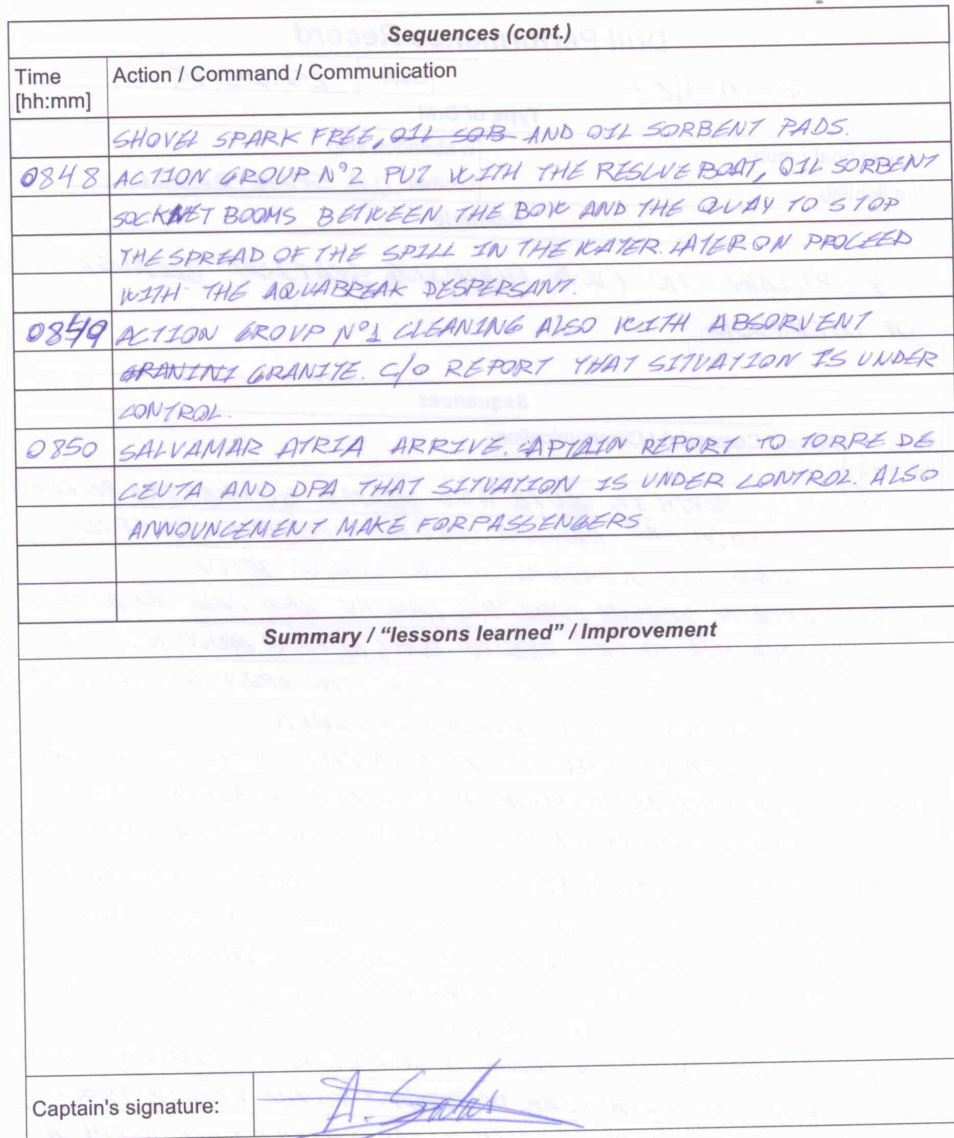 Sequences (cont.)
Time Action / Command / Communication
[hh:mm]
SHOVEL SPARK FREE, OIL SOB AND OIL SORBENT PADS.
0848 ACTION GROUP Nº2 PUT WITH THE RESCUE BOAT, OIL SORBENT
SOCKNET BOOMS BETWEEN THE BOW AND THE QUAY TO STOP
THE SPREAD OF THE SPILL IN THE WATER. LATER ON PROCEED
WITH THE AQUABREAK DESPERSANT.
0849 ACTION GROUP Nº1 CLEANING ALSO WITH ABSORVENT
GRANINI GRANITE. C/O REPORT THAT SITUATION IS UNDER
CONTROL.
0850 SALVAMAR ATRIA ARRIVE. CAPTAIN REPORT TO TORRE DE
CEUTA AND DPA THAT SITUATION IS UNDER CONTROL. ALSO
ANNOUNCEMENT MAKE FOR PASSENGERS.
Summary / “lessons learned” / Improvement
Captain's signature: A. Salas